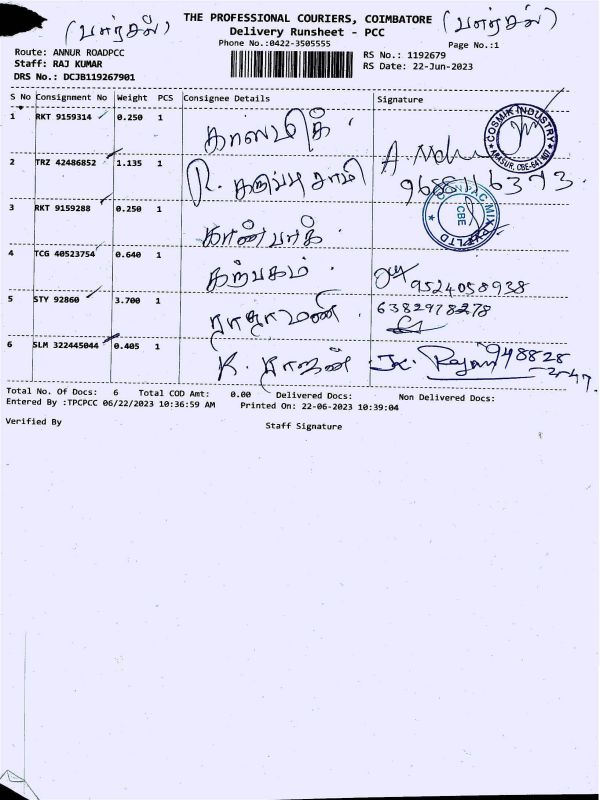 (பார்சல்)
(பார்சல்)
THE PROFESSIONAL COURIERS, COIMBATORE
Delivery Runsheet - PCC
Phone No.:0422-3505555
Page No.:1
Route: ANNUR ROADPCC
Staff: RAJ KUMAR
DRS No.: DCJB119267901
RS No.: 1192679
RS Date: 22-Jun-2023
S No Consignment No Weight PCS Consignee Details Signature
1 RKT 9159314 0.250 1
COSMIK INDUSTRY
2 TRZ 42486852 1.135 1 R. கருப்புசாமி
3 RKT 9159288 0.250 1
CBE
4 TCG 40523754 0.640 1 கற்பகம் 9524058938
5 STY 92860 3.700 1 ராதாமணி 6382978278
6 SLM 322445044 0.405 1 K. ராஜன் Rajan 948828
Total No. Of Docs: 6 Total COD Amt: 0.00 Delivered Docs: Non Delivered Docs:
Entered By :TPCPCC 06/22/2023 10:36:59 AM Printed On: 22-06-2023 10:39:04
Verified By
Staff Signature